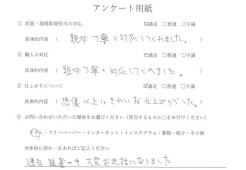 アンケート用紙
① 営業・現場監督担当の対応 ☑満足 □普通 □不満
具体的内容（ 親切丁寧に対応してくれました。 ）
② 職人の対応 ☑満足 □普通 □不満
具体的内容（ 親切丁寧の対応してくれました。 ）
③ 仕上がりについて ☑満足 □普通 □不満
具体的内容（ 想像以上にきれいな仕上がりでした。 ）
④ お問い合わせいただいた媒体をお選びください（該当するものに○をお付けください）
・フリーペーパー・インターネット・インスタグラム・看板・紹介・その他
全体的に何か一言あればご記入ください
連日 猛暑の中 大変お世話になりました